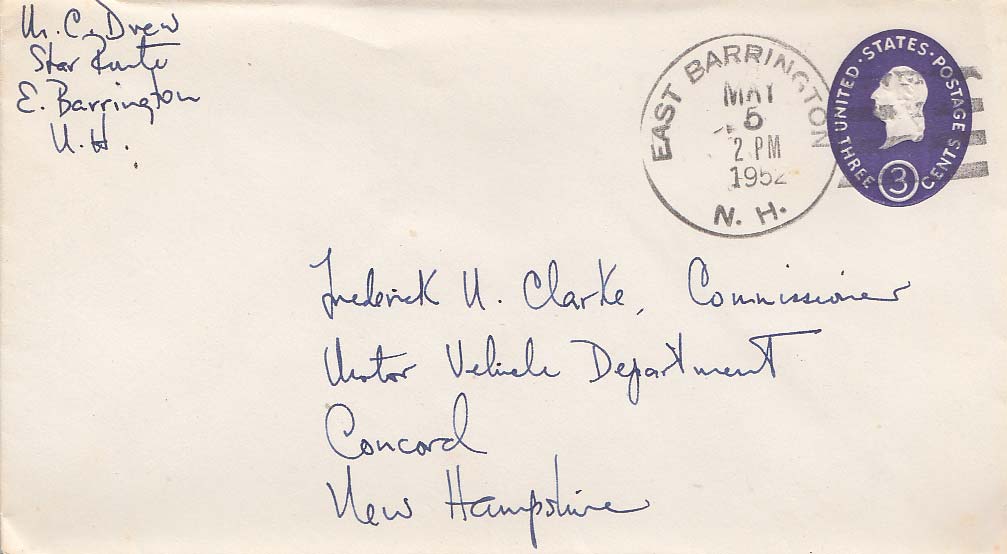 M. C. Drew
Star Route
E. Barrington
N.H.
EAST BARRINGTON
MAY
5
2 PM
1952
N. H.
UNITED·STATES·POSTAGE
THREE 3 CENTS
Frederick N. Clarke, Commissioner
Motor Vehicle Department
Concord
New Hampshire